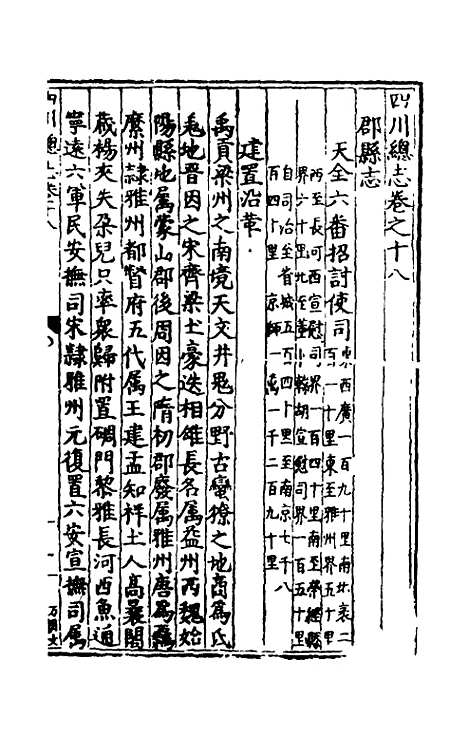 四川總志卷之十八
郡縣志
天全六番招討使司東西廣一百九十里南北袤二
百一十里東至雅州界五十里
西至長河西宣慰司界一百四十里南至榮經縣
界六十里北至董卜韓胡宣慰司界一百五十里
自司治至省城五百四十里至南京七千八
百四十里京師一萬一千二百九十里
建置沿革
禹貢梁州之南境天文井鬼分野古蠻獠之地商為氐
羌地晋因之宋齊梁土豪迭相雄長名属益州西魏始
陽縣也属蒙山郡後周因之隋初郡廢属雅州唐為羈
縻州隷雅州都督府五代属王建孟知祥土人高曩閣
蔵楊夾失朶兒只率衆歸附置碉門黎雅長河西魚通
寧遠六軍民安撫司宋隷雅州元復置六安宣撫司属
四川總志卷十八